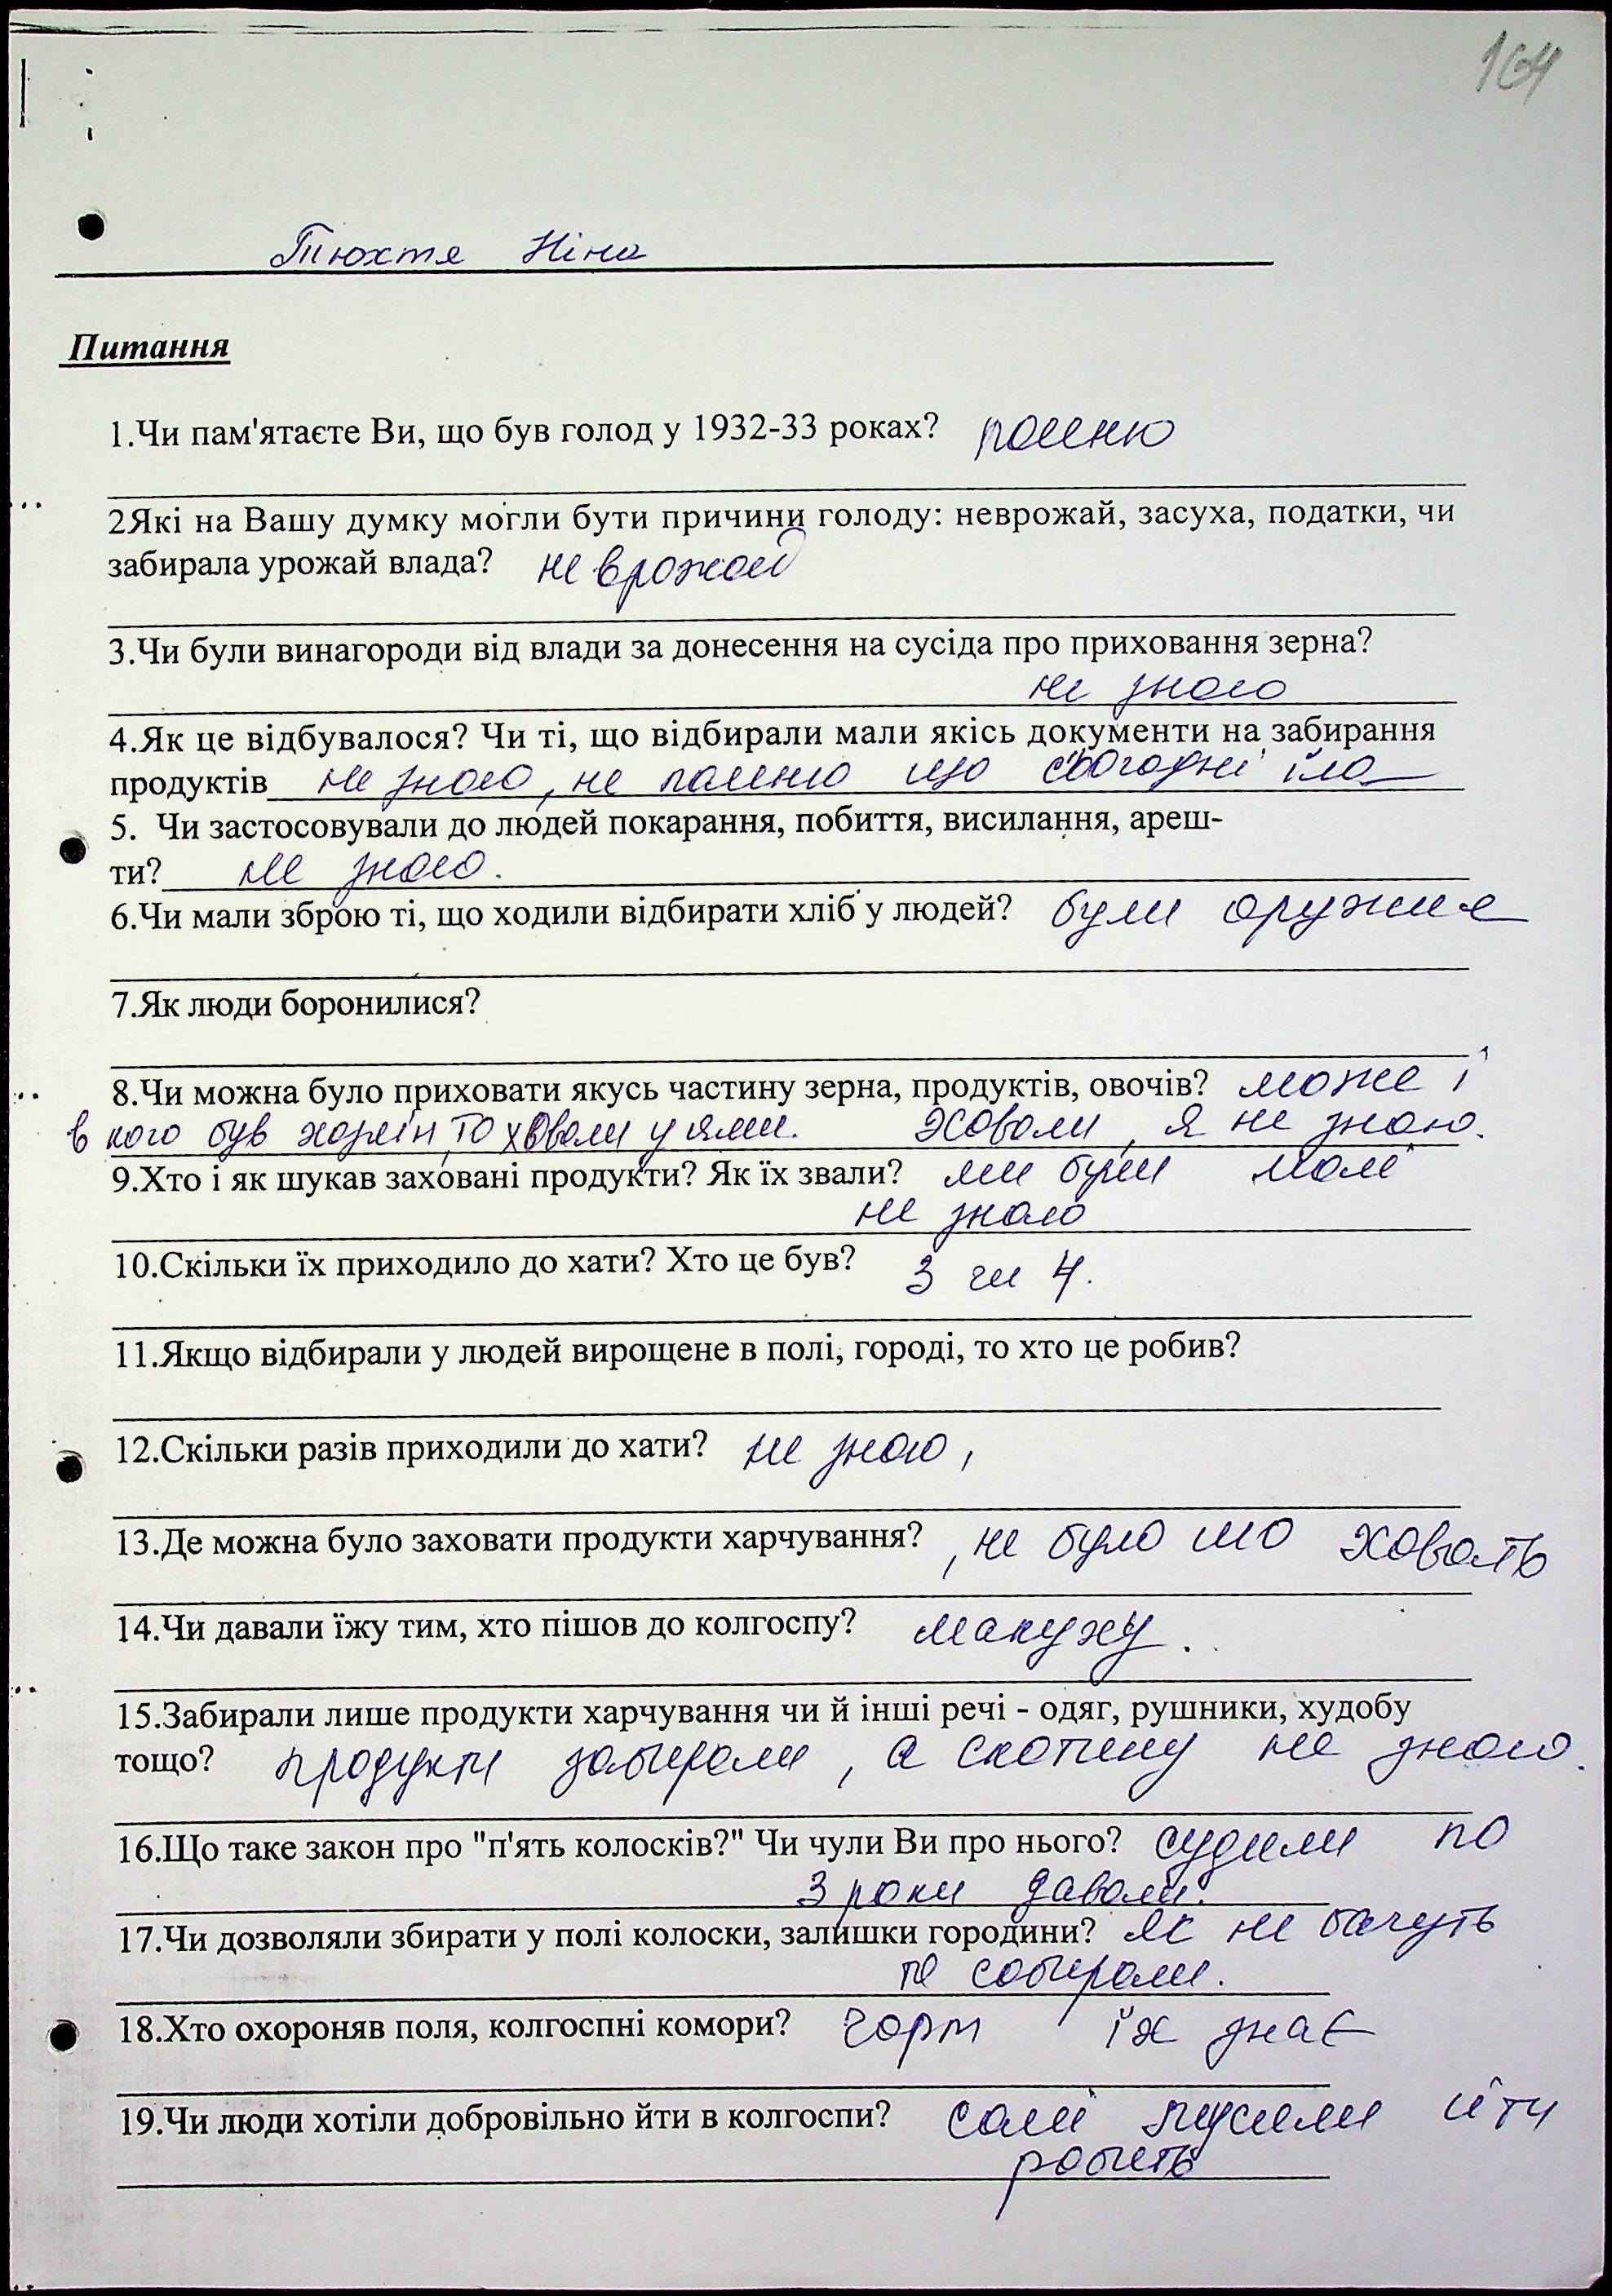 164
Тюхтя Ніна
Питання
1.Чи пам'ятаєте Ви, що був голод у 1932-33 роках? помню
2Які на Вашу думку могли бути причини голоду: неврожай, засуха, податки, чи
забирала урожай влада? не врожай
3.Чи були винагороди від влади за донесення на сусіда про приховання зерна?
не знаю
4.Як це відбувалося? Чи ті, що відбирали мали якісь документи на забирання
продуктів не знаю, не помню що сьогодні їла
5. Чи застосовували до людей покарання, побиття, висилання, ареш-
ти? не знаю.
6.Чи мали зброю ті, що ходили відбирати хліб у людей? були оружия
7.Як люди боронилися?
8.Чи можна було приховати якусь частину зерна, продуктів, овочів? може і
в кого був хозяїн, то ховали у ями. Ховали, я не знаю.
9.Хто і як шукав заховані продукти? Як їх звали? ми були малі
не знаю
10.Скільки їх приходило до хати? Хто це був? 3 чи 4.
11.Якщо відбирали у людей вирощене в полі, городі, то хто це робив?
12.Скільки разів приходили до хати? не знаю,
13.Де можна було заховати продукти харчування? , не було шо ховать
14.Чи давали їжу тим, хто пішов до колгоспу? макуху.
15.Забирали лише продукти харчування чи й інші речі - одяг, рушники, худобу
тощо? продукти забирали, а скотину не знаю.
16.Що таке закон про "п'ять колосків?" Чи чули Ви про нього? судили по
3 роки давали.
17.Чи дозволяли збирати у полі колоски, залишки городини? як не бачуть
то собирали.
18.Хто охороняв поля, колгоспні комори? чорт їх знає
19.Чи люди хотіли добровільно йти в колгоспи? самі мусили йти
робить